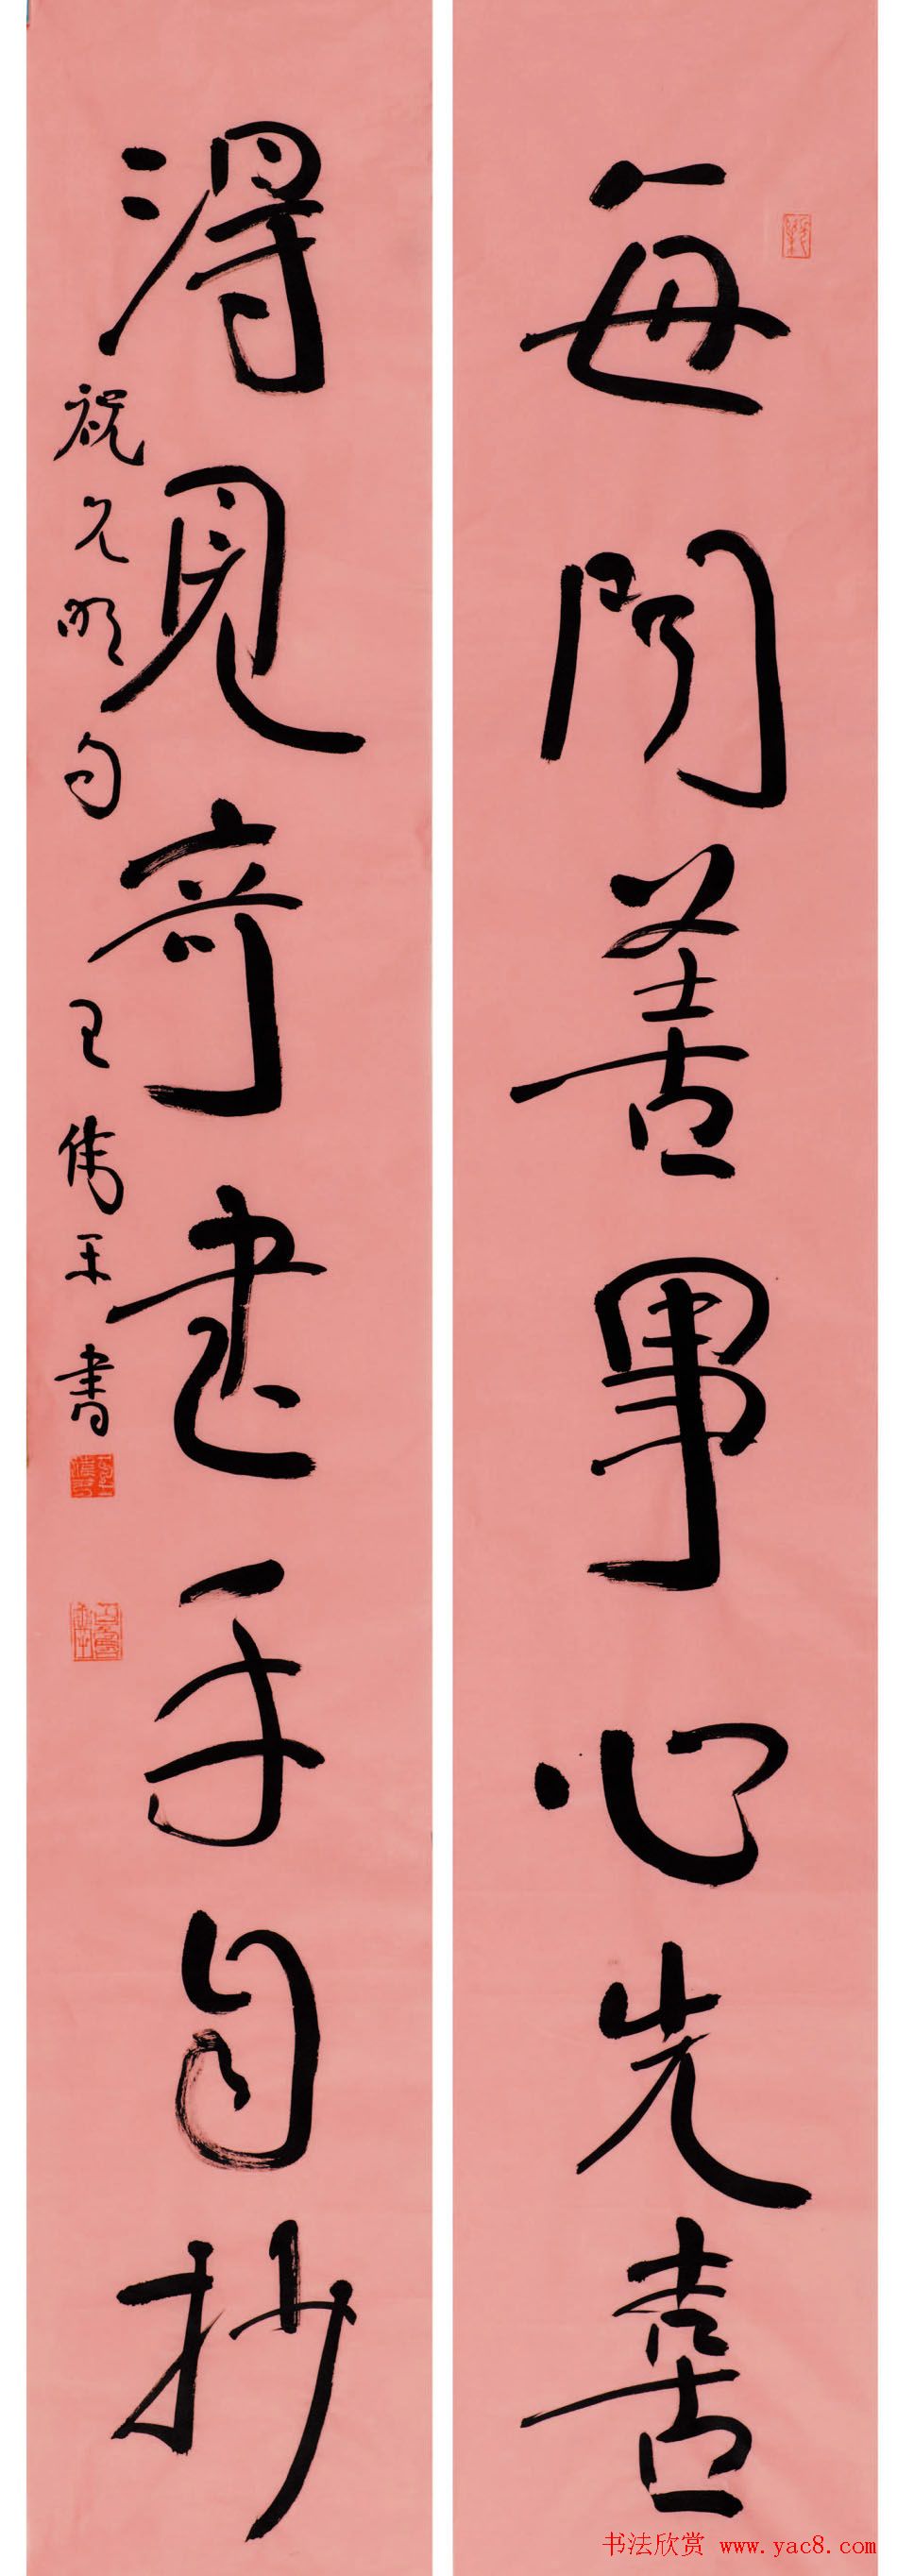 每闻善事心先喜
得见奇书手自抄
祝允明句 王伟平書
书法欣赏 www.yac8.com